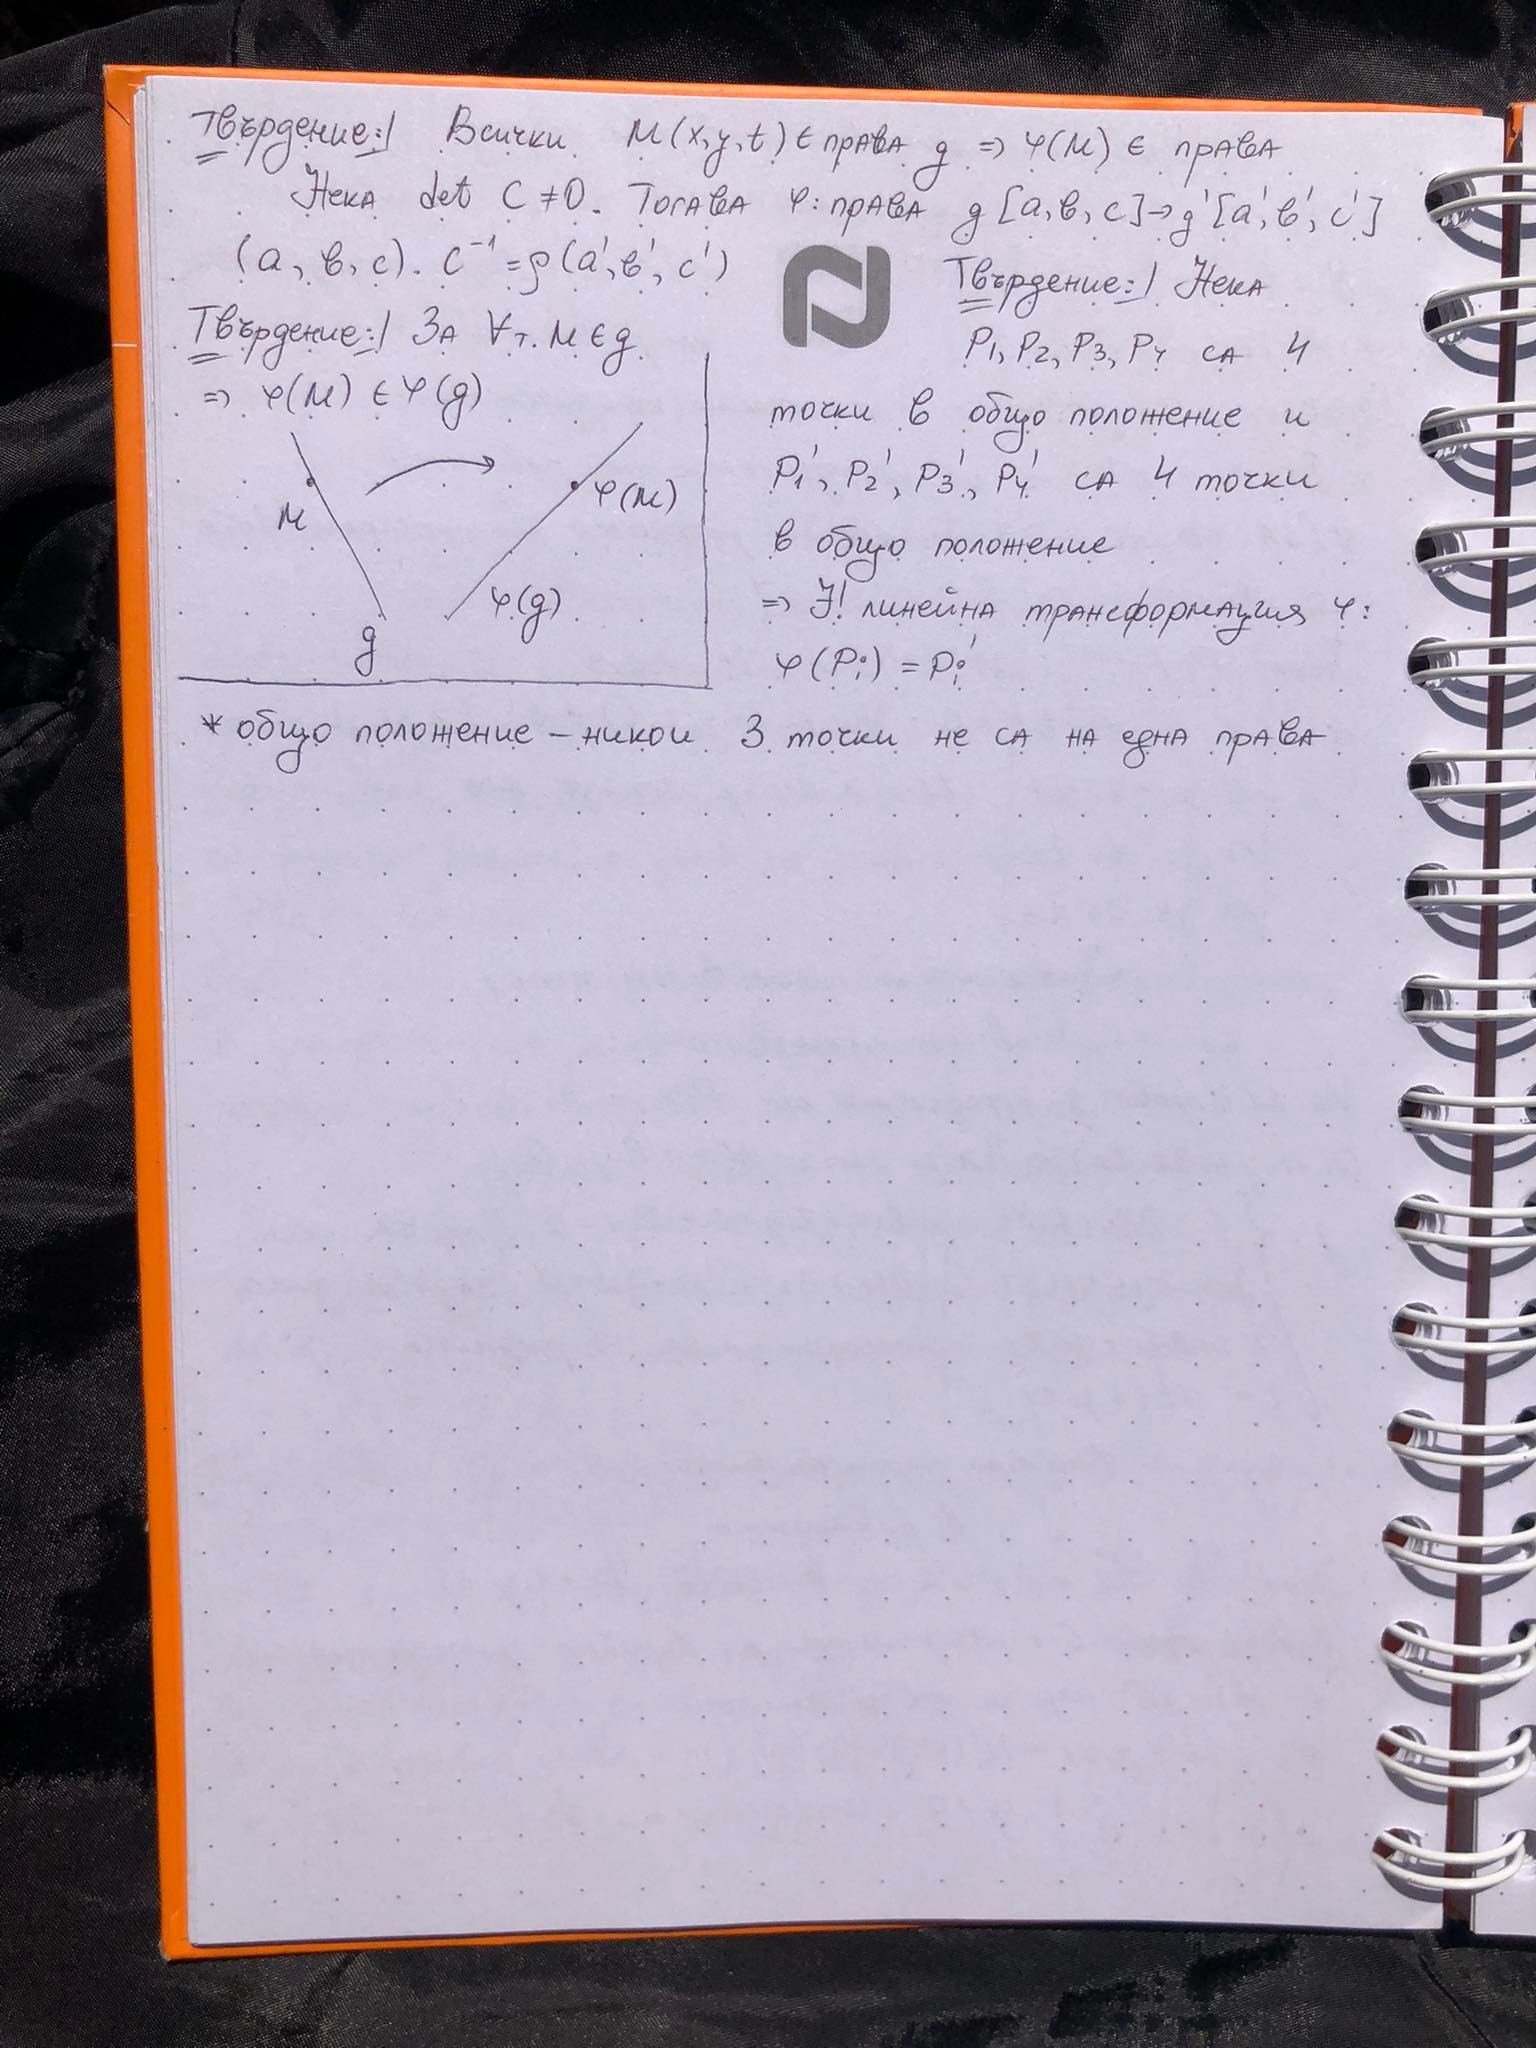 Твърдение:/ Всички M(x,y,t) ∈ права g => φ(M) ∈ права
Нека det C ≠ 0. Тогава φ: права g [a, b, c] → g' [a', b', c']
(a, b, c). C⁻¹ = ρ(a', b', c')
Твърдение:/ За ∀т. M ∈ g
=> φ(M) ∈ φ(g)
M
φ(M)
φ(g)
g
Твърдение:/ Нека
P₁, P₂, P₃, P₄ са 4
точки в общо положение и
P₁', P₂', P₃', P₄' са 4 точки
в общо положение
=> ∃! линейна трансформация φ:
φ(Pᵢ) = Pᵢ'
* общо положение – никои 3 точки не са на една права